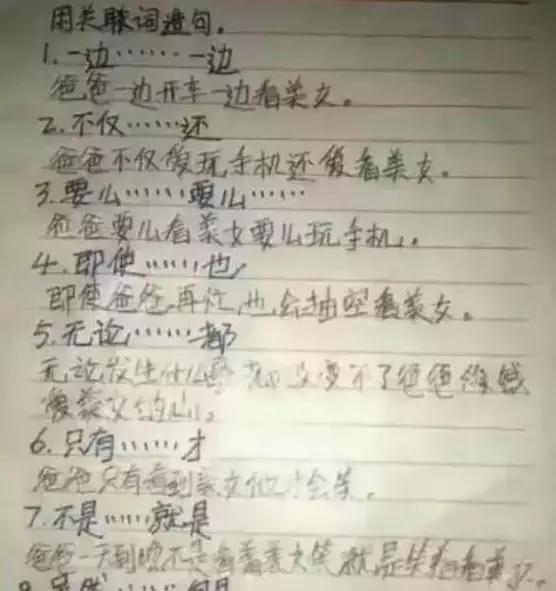 用关联词造句。
1.一边……一边
爸爸一边开车一边看美女。
2.不仅……还
爸爸不仅爱玩手机还爱看美女。
3.要么……要么……
爸爸要么看美女要么玩手机。
4.即使……也
即使爸爸再忙,也会抽空看美女。
5.无论……都
无论发生什么事都改变不了爸爸
爱美女的心。
6.只有……才
爸爸只有看到美女他才会笑。
7.不是……就是
爸爸一天到晚不是看着美女笑就是笑着看美女。